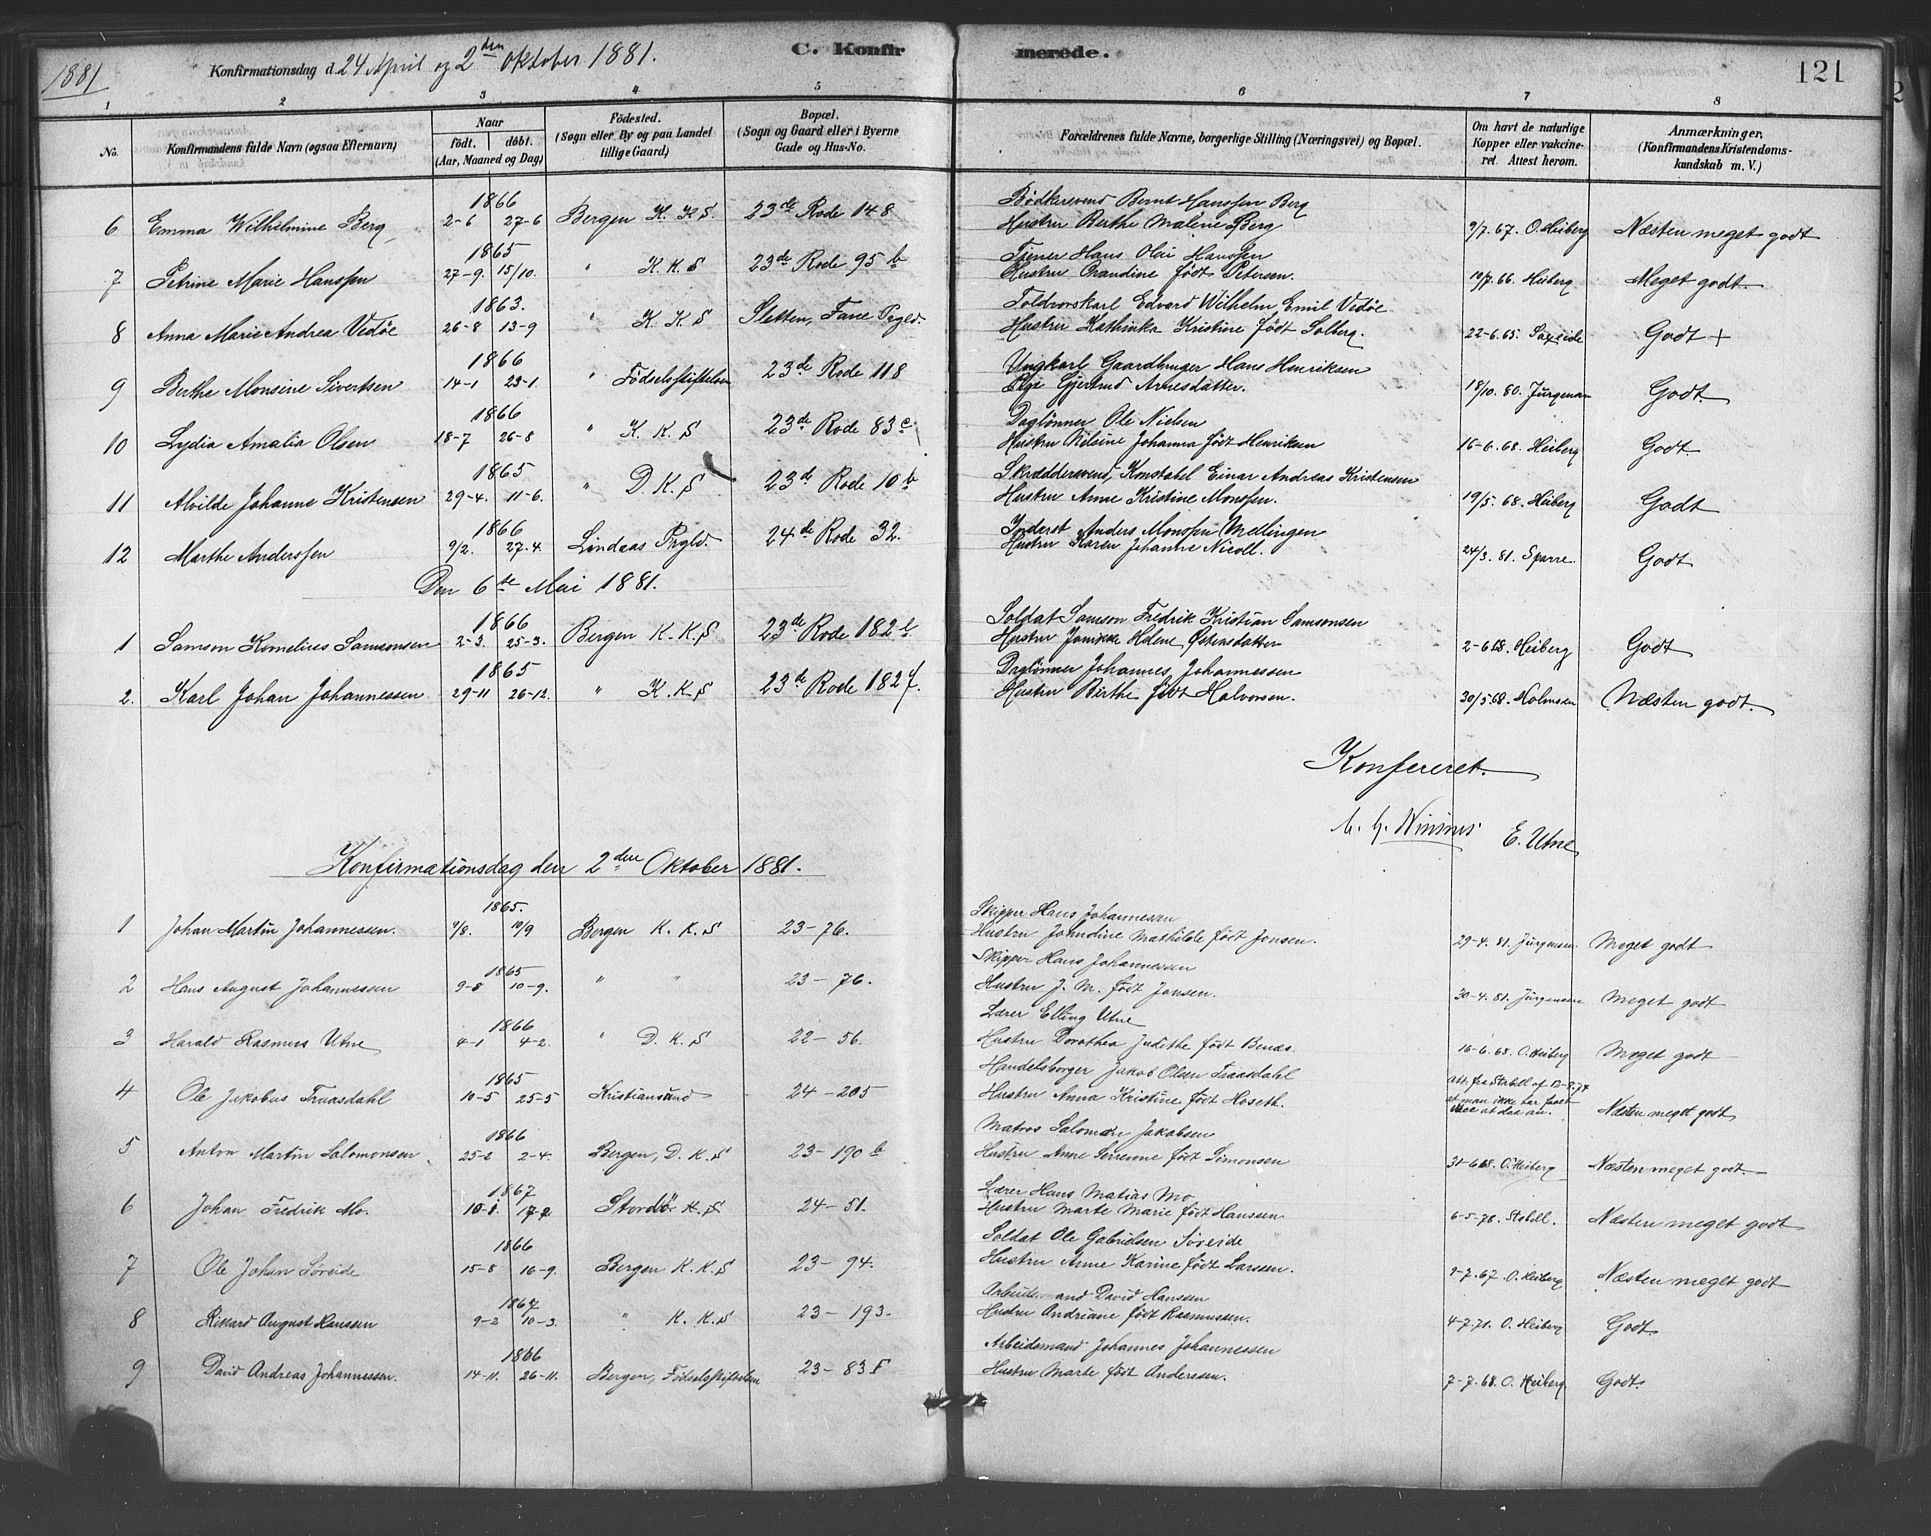 1881
Konfirmationsdag d. 24 April og 2den Oktober 1881.
C. Konfirmerede.
121
1 2 3 4 5 6 7 8
No.
Konfirmandens fulde Navn (ogsaa Efternavn)
Naar
født. døbt.
(Aar, Maaned og Dag)
Fødested.
(Sogn eller By og paa Landet
tillige Gaard.)
Bopæl.
(Sogn og Gaard eller i Byerne
Gade og Hus-No.
Forældrenes fulde Navne, borgerlige Stilling (Næringsvei) og Bopæl.
Om havt de naturlige
Kopper eller vakcine-
ret. Attest herom.
Anmærkninger,
(Konfirmandens Kristendoms-
kundskab m. V.)
1866 Bødkersvend Bernt Hanssen Berg
6 Emma Wilhelmine Berg 2-6 27-6 Bergen K. K. S. 23de Rode 148 Hustru Berthe Malene Berg 9/7. 67. O. Heiberg Næsten meget godt
1865 Tjener Hans Olai Hanssen
7 Petrine Marie Hanssen 27-9. 15/10. " K. K. S 23de Rode 95b Hustru Orandine født Petersen. 10/7. 66. Heiberg Meget godt
1863. Toldvorskarl Edvard Wilhelm Emil Vedøe
8 Anna Marie Andrea Vedøe 26-8 13-9 " K. K. S Sletten, Fane Prgld. Hustru Kathinka Kristine født Solberg. 22-6. 65. Saxeide Godt +
1866 Ungkarl Gaardbruger Hans Henriksen
9 Berthe Monsine Sivertsen 14-1 23-1. " Fødselsstiftelsen 23de Rode 118 Pige Gjertrud Arnesdatter. 18/10. 80. Jürgensen Godt.
1866 Daglønner Ole Nielsen
10 Lydia Amalia Olsen 18-7 26-8 " K. K. S 23de Rode 83c Hustru Nilsine Johanna født Henriksen 16-6. 68. Heiberg Godt.
1865 Skræddersvend, Konstabel Einar Andreas Kristensen
11 Alvilde Johanne Kristensen 29-4. 11-6. " D. K. S 23de Rode 10b Hustru Anne Kristine Monssen. 19/5. 68. Heiberg Godt
1866 Inderst Anders Monssen Mellingen
12 Marthe Anderssen 9/2. 27.4. Lindaas Prgld. 24de Rode 32. Hustru Karen Johanne Nicoll. 24/3. 81. Sparre. Godt
Den 6te Mai 1881.
1866 Soldat Samson Fredrik Kristian Samsonsen
1 Samson Kornelius Samsonsen 2-3. 25-3. Bergen K. K. S 23de Rode 182b. Hustru Janikke Helene Østensdatter 2-6 68. Heiberg Godt
1865 Daglønner Johannes Johannessen
2. Karl Johan Johannessen 29-11 26-12. " K. K. S 23de Rode 182f. Hustru Birthe født Halvorsen. 30/5.68. Holmsen Næsten godt.
Konfereret.
E. Utne
Konfirmationsdag den 2den Oktober 1881.
1865. Skipper Hans Johannessen
1 Johan Martin Johannessen. 9/8. 10/9 Bergen K. K. S 23-76. Hustru Johndine Mathilde født Jonsen. 29-4. 81. Jürgensen. Meget godt
1865 Skipper Hans Johannessen
2 Hans August Johannessen 9-8 10-9. " " 23-76. Hustru J. M. født Jonsen. 30-4. 81. Jürgensen Meget godt
1866 Lærer Elling Utne
3 Harald Rasmus Utne 4-1 4-2. " D. K. S 22-56. Hustru Dorothea Judithe født Benas. 16-6. 68. O. Heiberg Meget godt
1865 Handelsborger Jakob Olsen Traasdahl
4 Ole Jakobus Traasdahl 10-5 25-5 Kristiansund 24-205 Hustru Anna Kristine født Hoseth. att. fra Stabell af 12-8. 74 at man ikke har faaet vacc at slaa an. Næsten meget godt
1866 Matros Salomon Jakobsen
5 Anton Martin Salomonsen 25-2 2-4. Bergen, D. K. S 23-190b Hustru Anne Serrenne født Simonsen 31-6 68. O. Heiberg Næsten meget godt.
1867 Lærer Hans Matias Mo
6 Johan Fredrik Mo. 10-1. 17-2 Stordö K. S 24-51. Hustru Marte Marie født Hanssen 6-5-78. Stabell. Næsten meget godt
1866 Soldat Ole Gabrielsen Søreide
7 Ole Johan Søreide 15-8 16-9. Bergen K. K. S 23-94. Hustru Anne Karine født Larssen. 9-7. 67. O. Heiberg Næsten meget godt
1867 Arbeidsmand David Hanssen
8 Rikard August Hanssen 9-2 10-3. " K. K. S 23-193. Hustru Andriane født Rasmussen. 4-7. 71. O. Heiberg Godt
1866 Arbeidsmand Johannes Johannessen
9 David Andreas Johannessen. 14-11. 26-11. Bergen, Fødselsstiftelsen 23-83f Hustru Marte født Anderssen. 7-7. 68. O. Heiberg Godt.